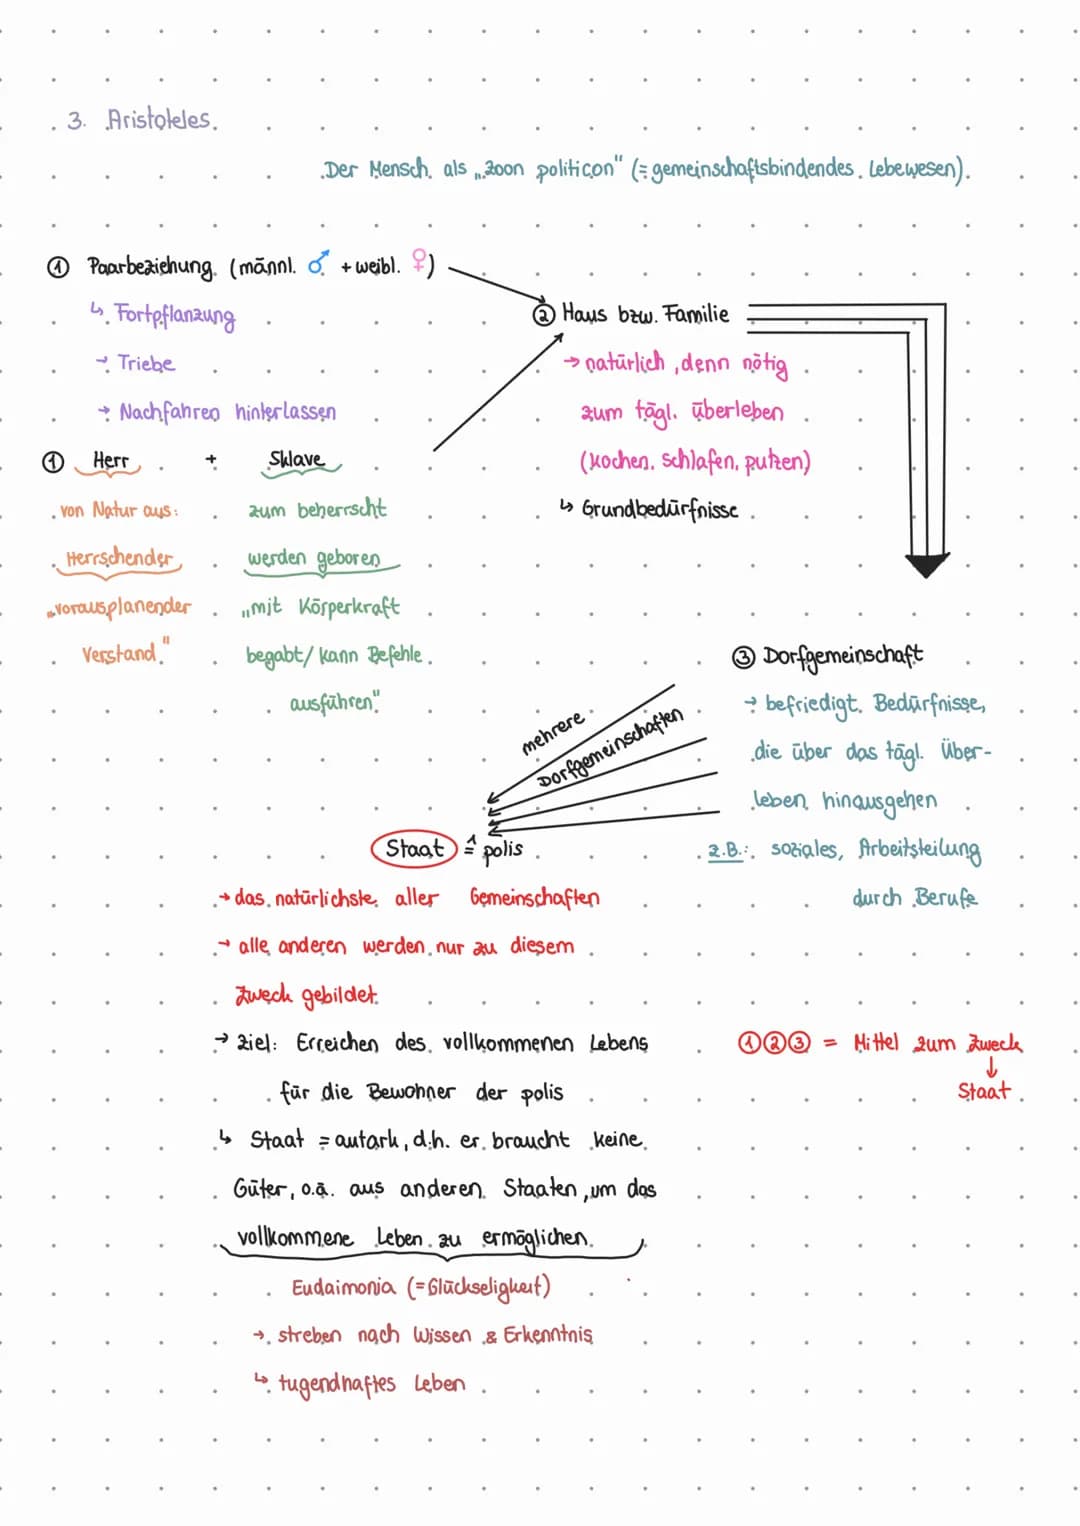 3. Aristoteles
Der Mensch als „zoon politicon" (= gemeinschaftsbindendes Lebewesen)
① Paarbeziehung (männl. ♂ + weibl. ♀)
↳ Fortpflanzung
→ Triebe
→ Nachfahren hinterlassen
② Haus bzw. Familie
→ natürlich, denn nötig
zum tägl. überleben
(kochen, schlafen, putzen)
↳ Grundbedürfnisse
① Herr + Sklave
von Natur aus:
Herrschender
„vorausplanender
Verstand"
zum beherrscht
werden geboren
„mit Körperkraft
begabt/ kann Befehle
ausführen"
③ Dorfgemeinschaft
→ befriedigt Bedürfnisse,
die über das tägl. Über-
leben hinausgehen
z.B.: soziales, Arbeitsteilung
durch Berufe
mehrere
Dorfgemeinschaften
Staat ≙ polis
→ das natürlichste aller Gemeinschaften
→ alle anderen werden nur zu diesem
Zweck gebildet
→ Ziel: Erreichen des vollkommenen Lebens
für die Bewohner der polis
↳ Staat = autark, d.h. er braucht keine
Güter, o.ä. aus anderen Staaten, um das
vollkommene Leben zu ermöglichen.
Eudaimonia (= Glückseligkeit)
→ streben nach Wissen & Erkenntnis
↳ tugendhaftes Leben
①②③ = Mittel zum Zweck
↓
Staat